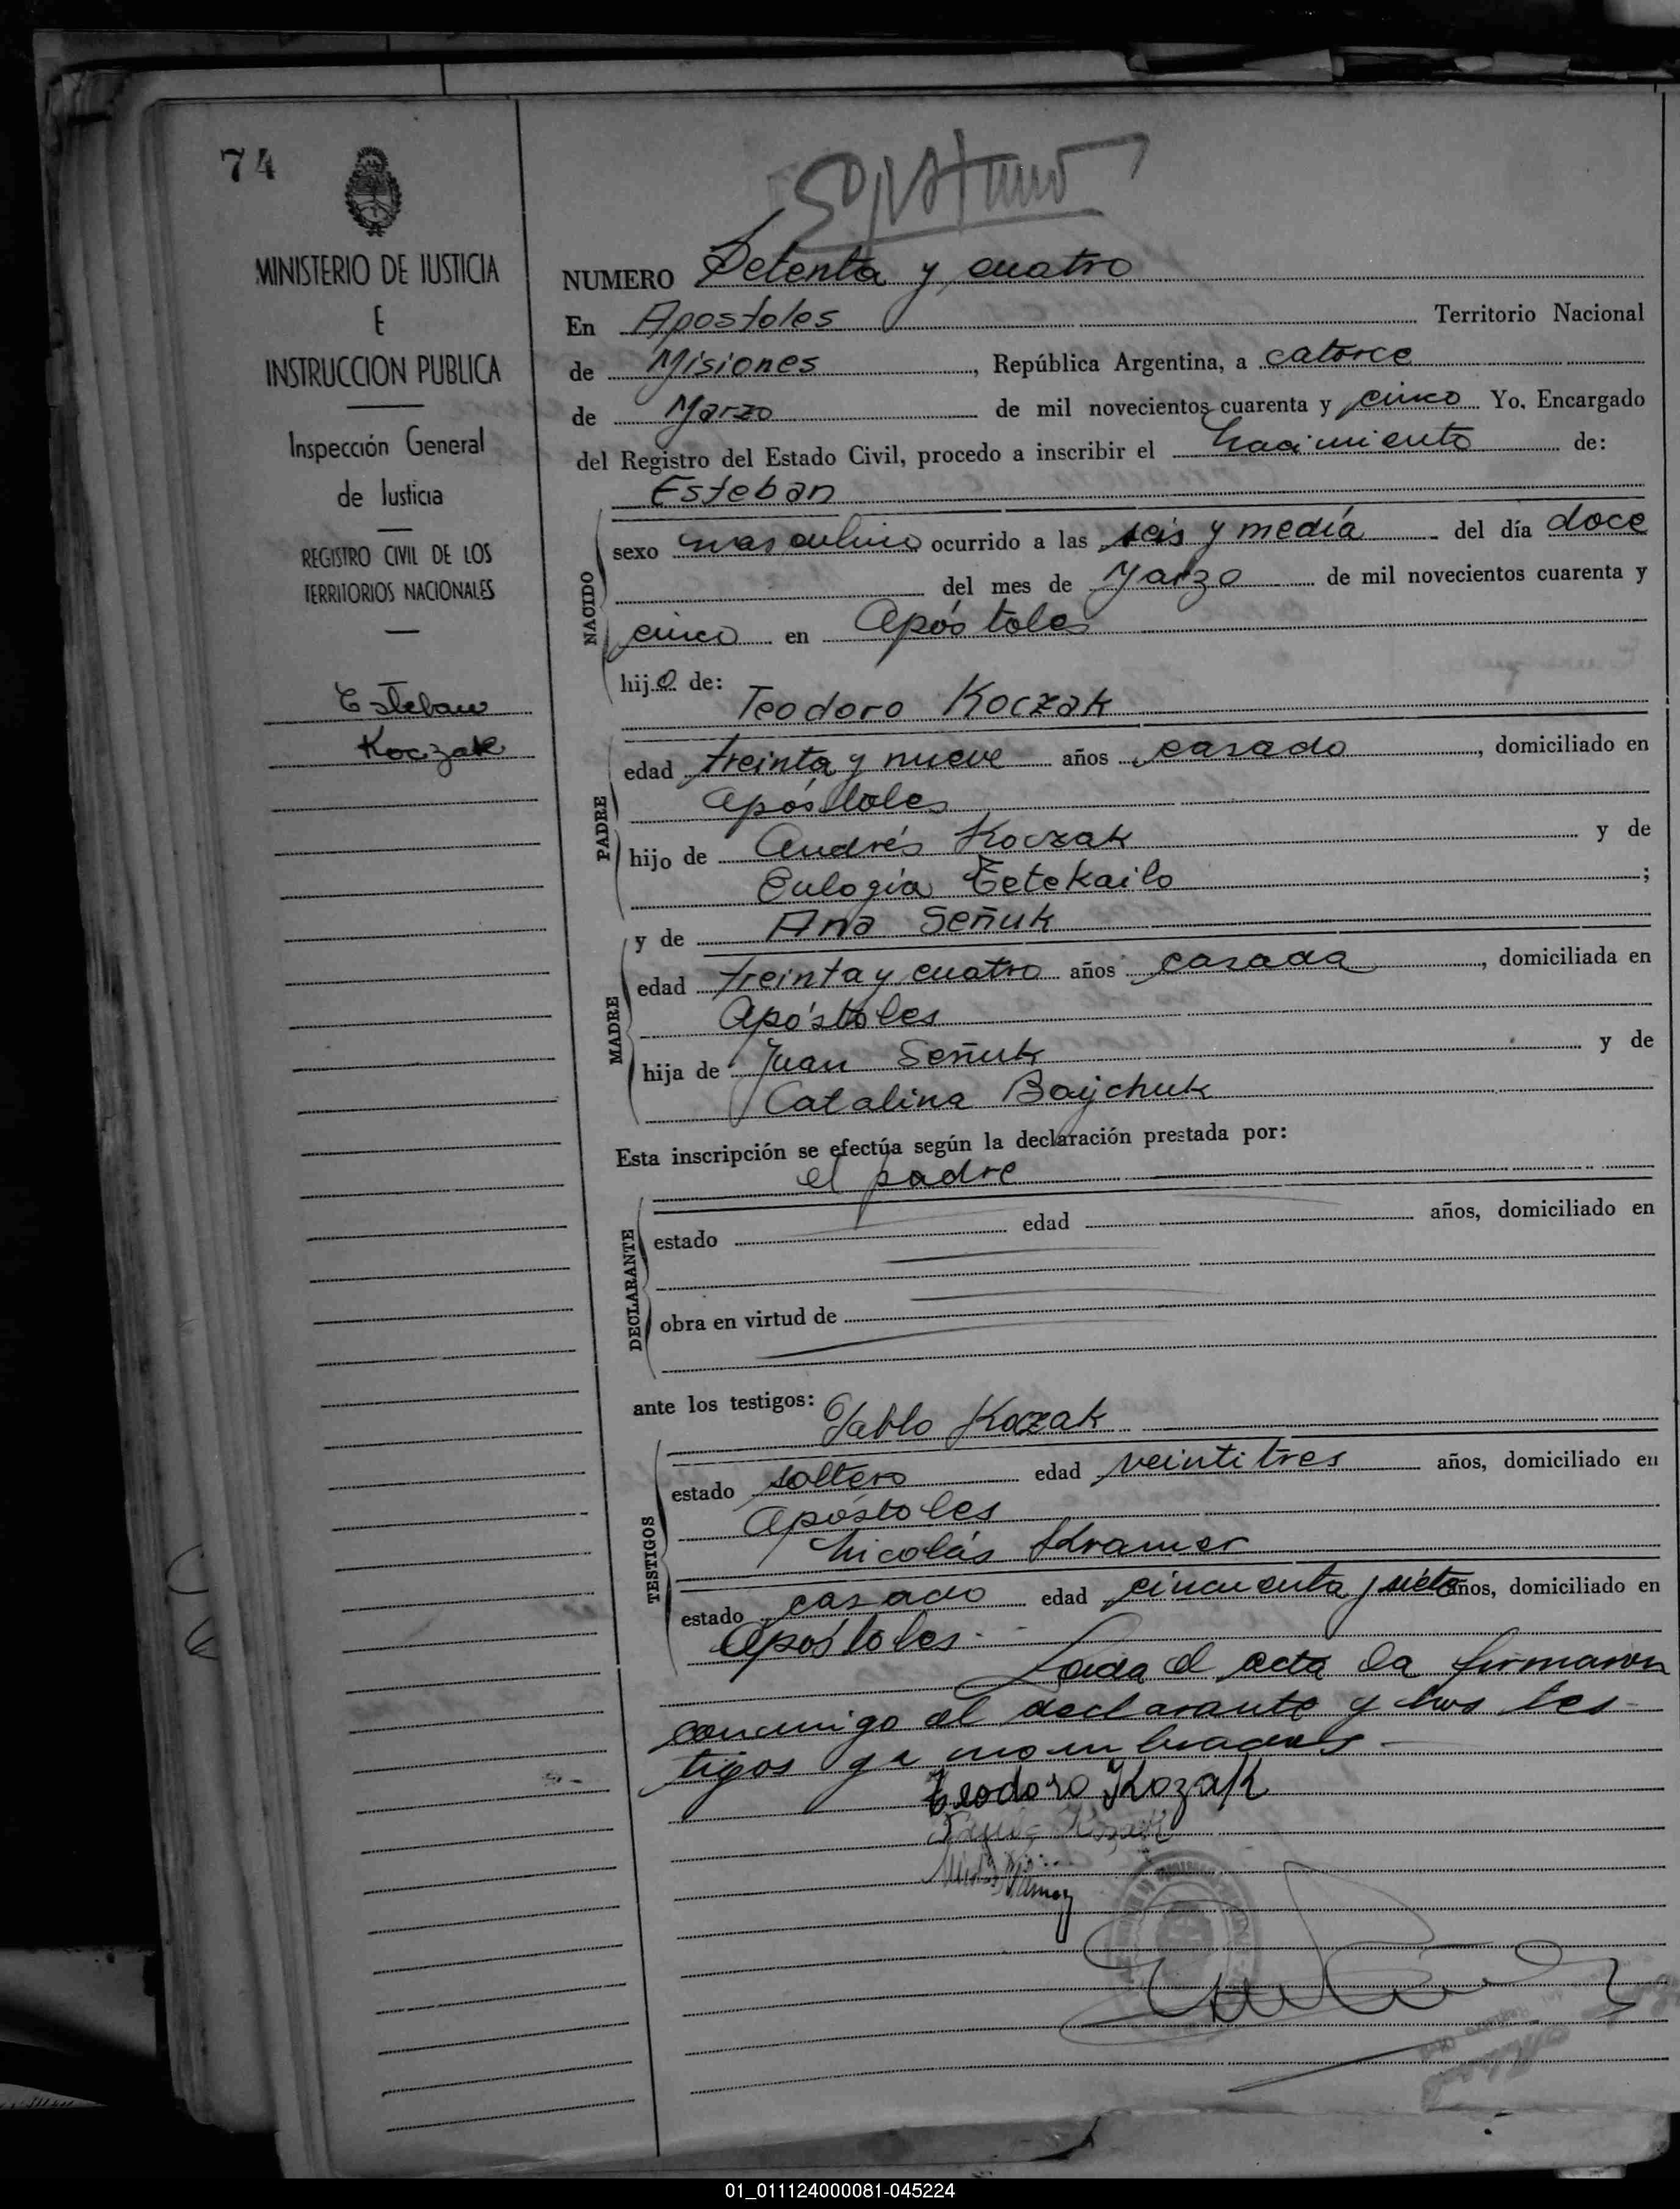 74
MINISTERIO DE JUSTICIA
E
INSTRUCCION PUBLICA
Inspección General
de Justicia
REGISTRO CIVIL DE LOS
TERRITORIOS NACIONALES
Esteban
Koczak
NUMERO Setenta y cuatro
En Apostoles Territorio Nacional
de Misiones, República Argentina, a catorce
de Marzo de mil novecientos cuarenta y cinco Yo, Encargado
del Registro del Estado Civil, procedo a inscribir el nacimiento de:
Esteban
NACIDO
sexo masculino ocurrido a las seis y media del día doce
del mes de Marzo de mil novecientos cuarenta y
cinco en Apóstoles
hijo de:
Teodoro Koczak
PADRE
edad treinta y nueve años casado, domiciliado en
Apóstoles
hijo de Andrés Koczak y de
Eulogia Tetekailo;
y de Ana Señuk
MADRE
edad treinta y cuatro años casada, domiciliada en
Apóstoles
hija de Juan Señuk y de
Catalina Baychuk
Esta inscripción se efectúa según la declaración prestada por:
el padre
DECLARANTE
estado edad años, domiciliado en
obra en virtud de
ante los testigos:
Pablo Kozak
TESTIGOS
estado soltero edad veintitres años, domiciliado en
Apóstoles
Nicolás Kramer
estado casado edad cincuenta y siete años, domiciliado en
Apóstoles.
Leida el acta la firmaron
conmigo el declarante y los tes-
tigos ya nombrados.-
Teodoro Kozak
01_011124000081-045224